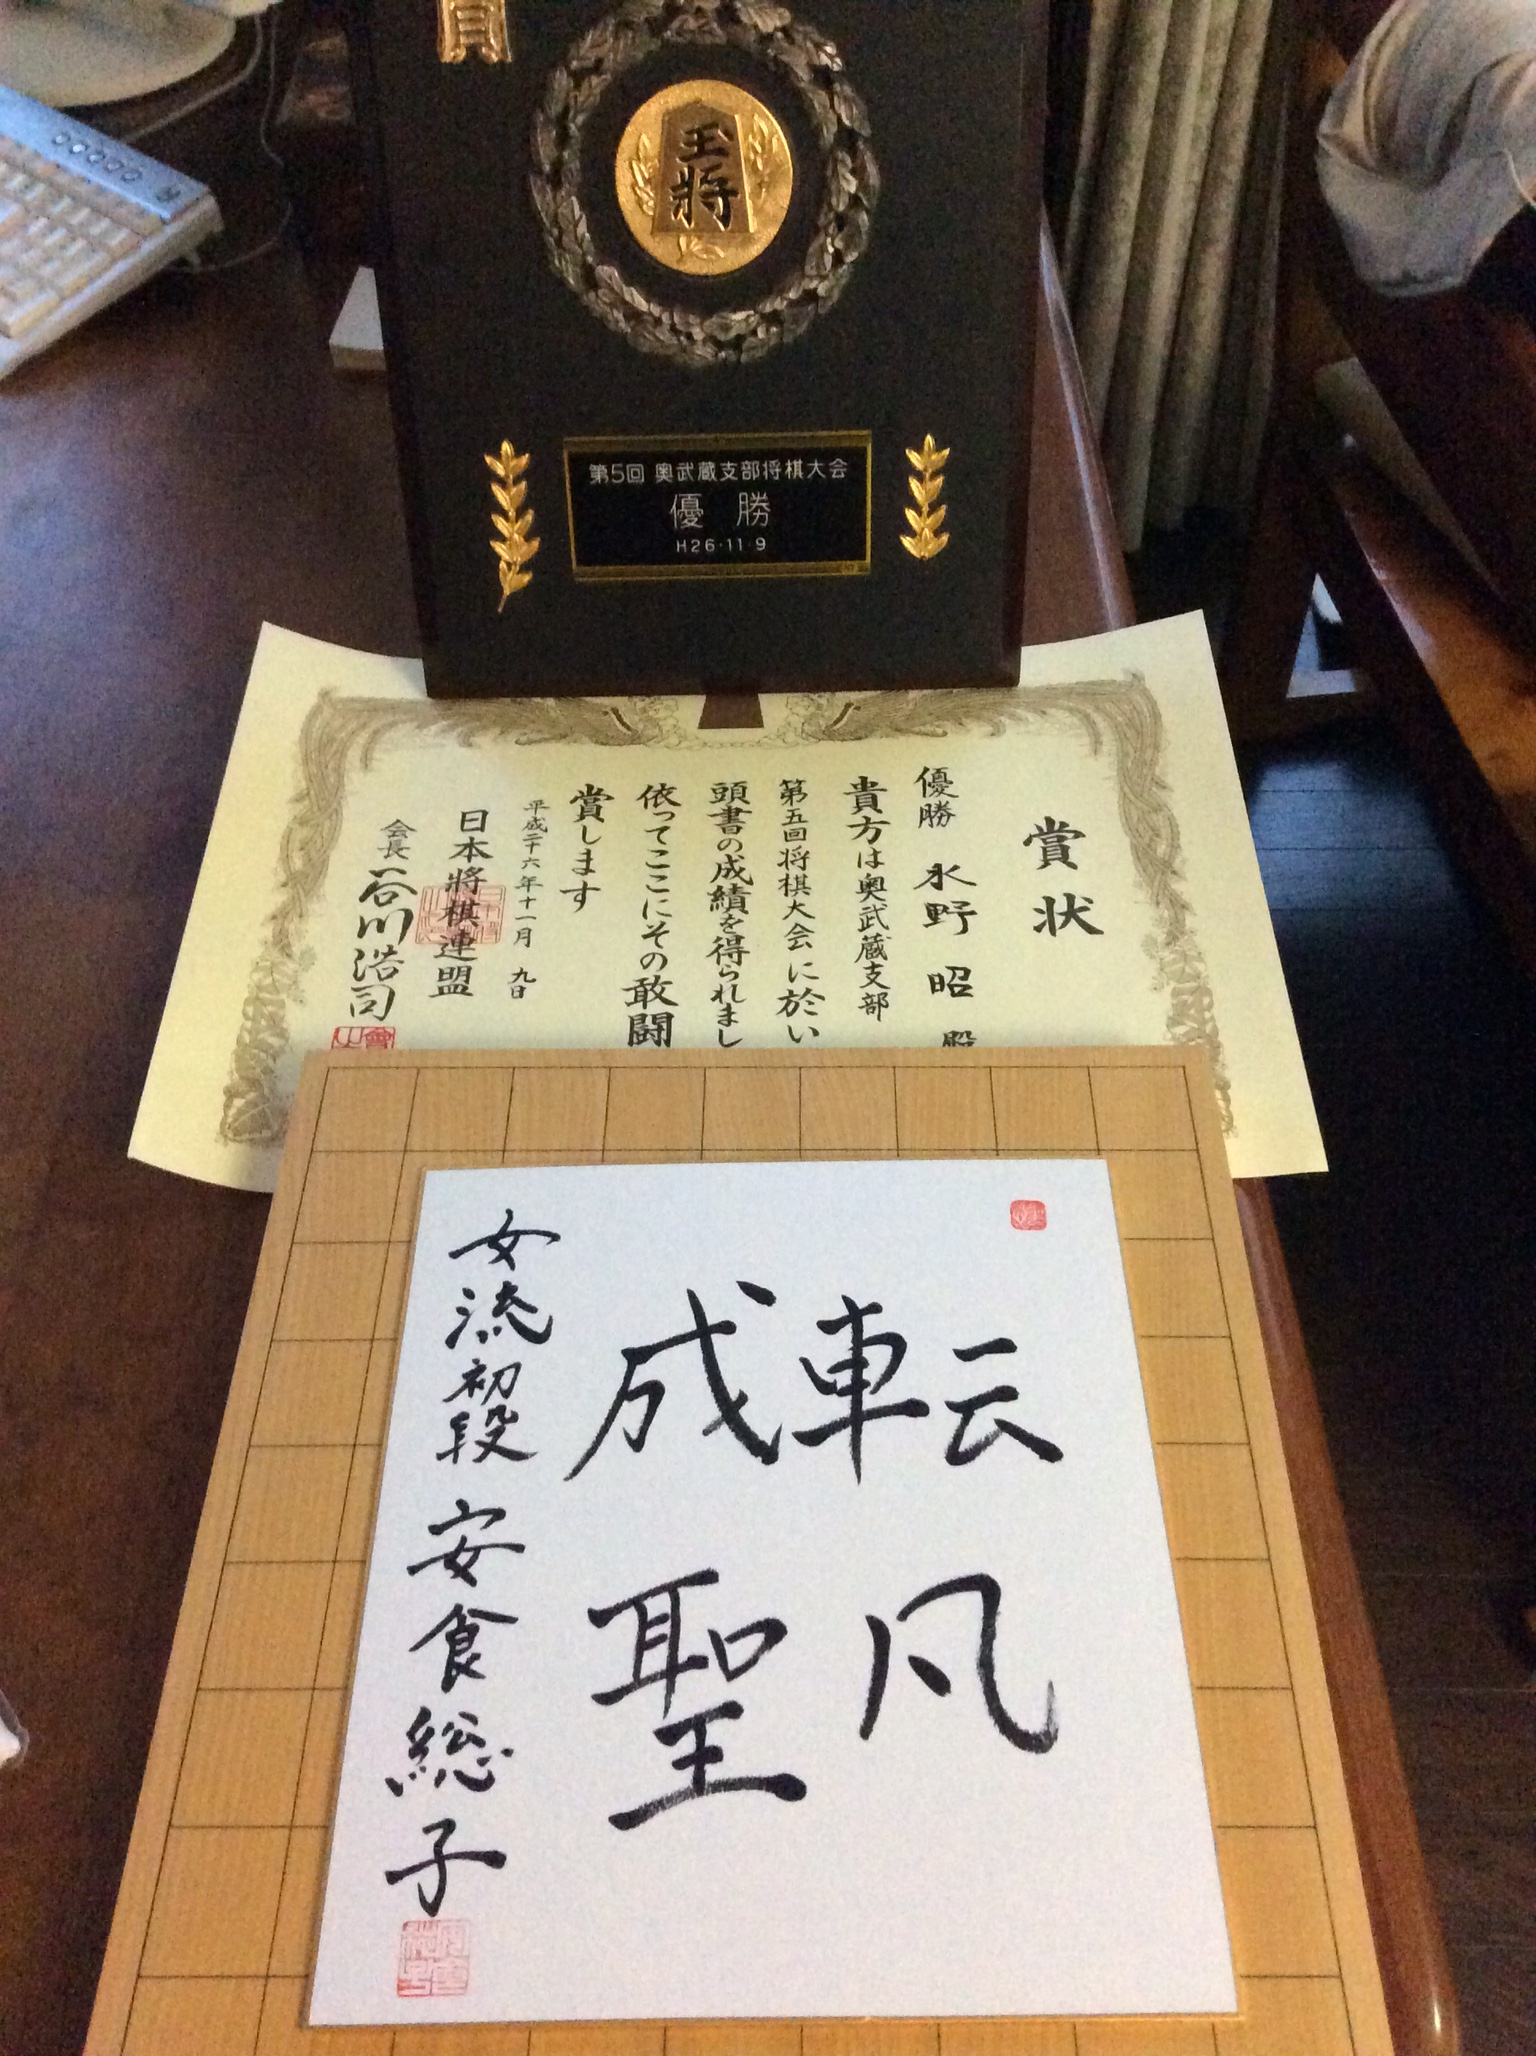 賞
王将
第5回 奥武蔵支部将棋大会
優 勝
H26・11・9
賞状
優勝 永野 昭 殿
貴方は奥武蔵支部
第五回将棋大会に於い
頭書の成績を得られまし
依ってここにその敢闘
賞します
平成二十六年十一月 九日
日本將棋連盟
会長 谷川浩司
転凡
成聖
女流初段 安食総子